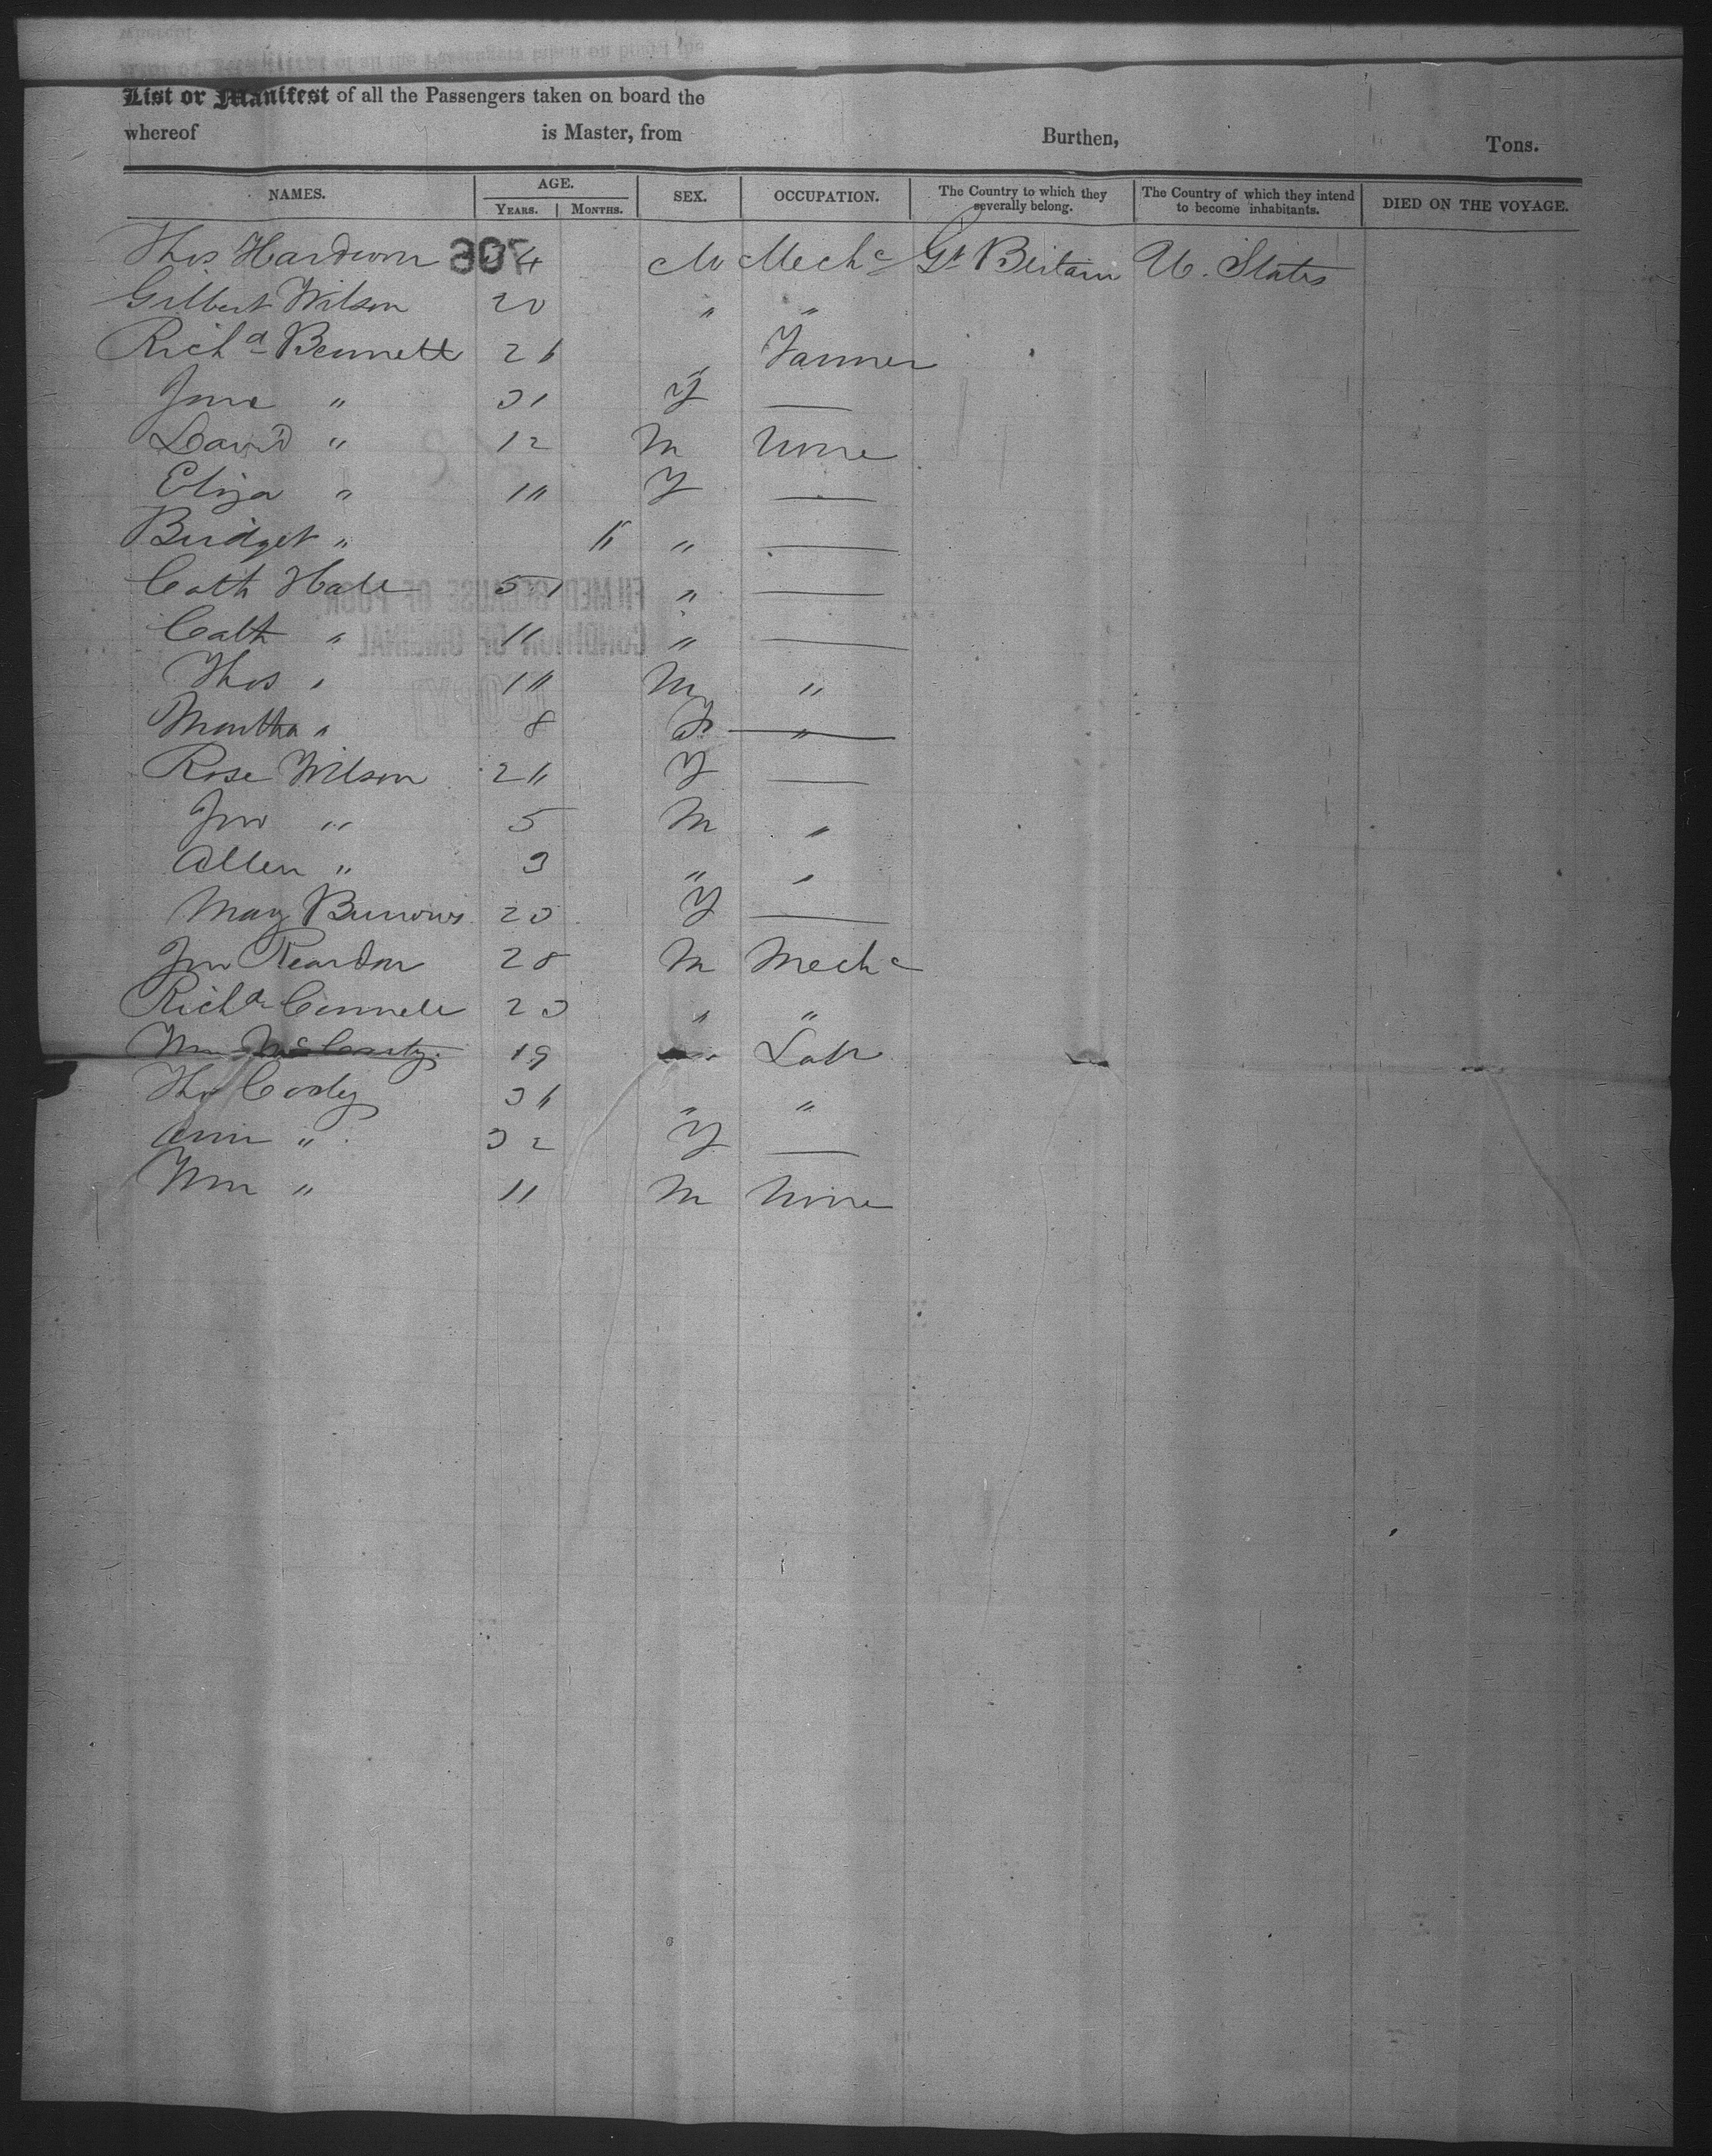 List or Manifest of all the Passengers taken on board the
whereof is Master, from Burthen, Tons.
NAMES. AGE. SEX. OCCUPATION. The Country to which they severally belong. The Country of which they intend to become inhabitants. DIED ON THE VOYAGE.
YEARS. MONTHS.
Thos 4 M Mechc Gt Britain U. States
Gilbert Wilson 20 " "
Richd Bennett 26 " Farmer
Jane " 31 F —
David " 12 M None
Eliza " F —
Bridget " " —
Cath Hall " —
Cath " 11 " —
Thos " M "
Martha " 8 F "
Rose Wilson F —
Jno " 5 M "
Allen " 3 " "
Mary Burrows F —
Jno Reardon 28 M Mechc
Richd Connell " "
Wm McCarty 19 Labr
Thos Cody 36 " "
Ann " 32 F —
Wm " 11 M None
FILMED BECAUSE OF POOR
CONDITION OF ORIGINAL